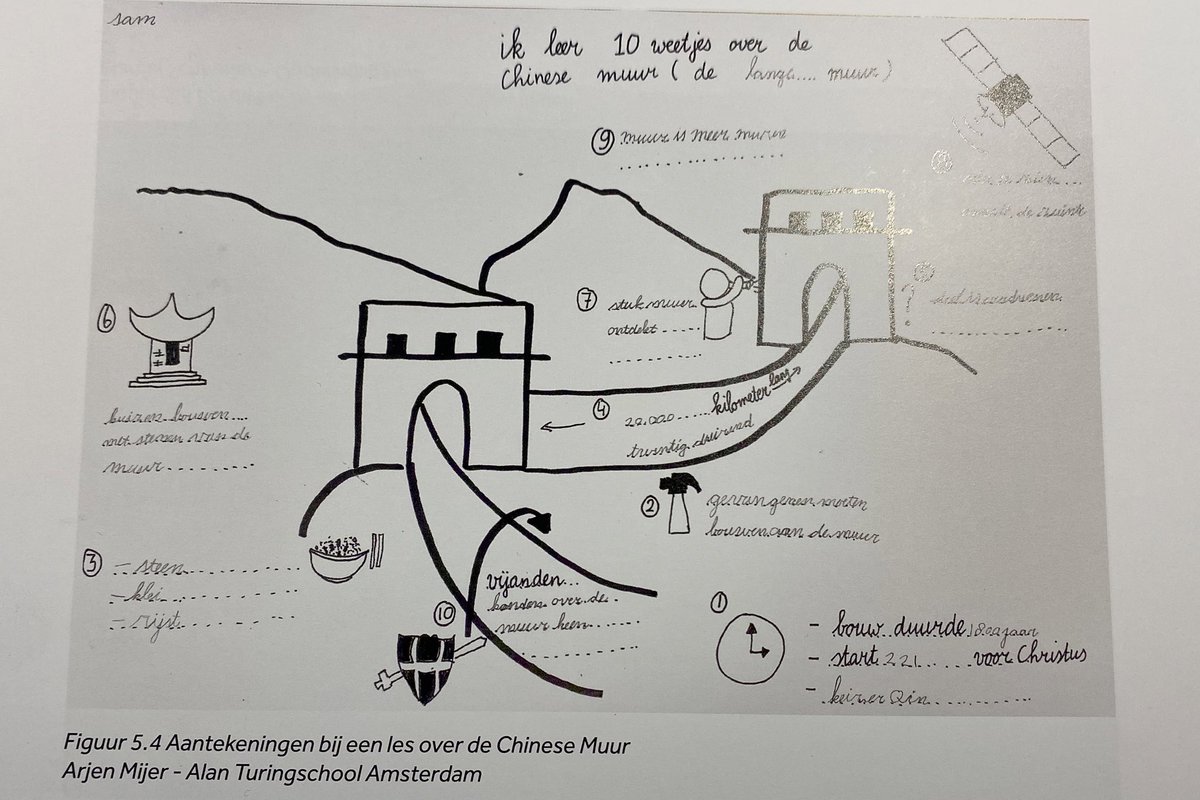 sam
ik leer 10 weetjes over de
Chinese muur ( de lange.... muur )
⑨ muur is meer muren
⑧
⑤
?
⑥
⑦ stuk muur
ontdekt
huizen bouwen....
met stenen van de
muur
④ 22.000 ...... kilometer lang →
twintig duizend
② gevangenen moeten
bouwen aan de muur
③ - steen
- klei
- rijst
vijanden...
konden over de
muur heen
⑩
① - bouw.. duurde 1800 jaar
- start 221 ...... voor Christus
- keizer Qin
Figuur 5.4 Aantekeningen bij een les over de Chinese Muur
Arjen Mijer - Alan Turingschool Amsterdam